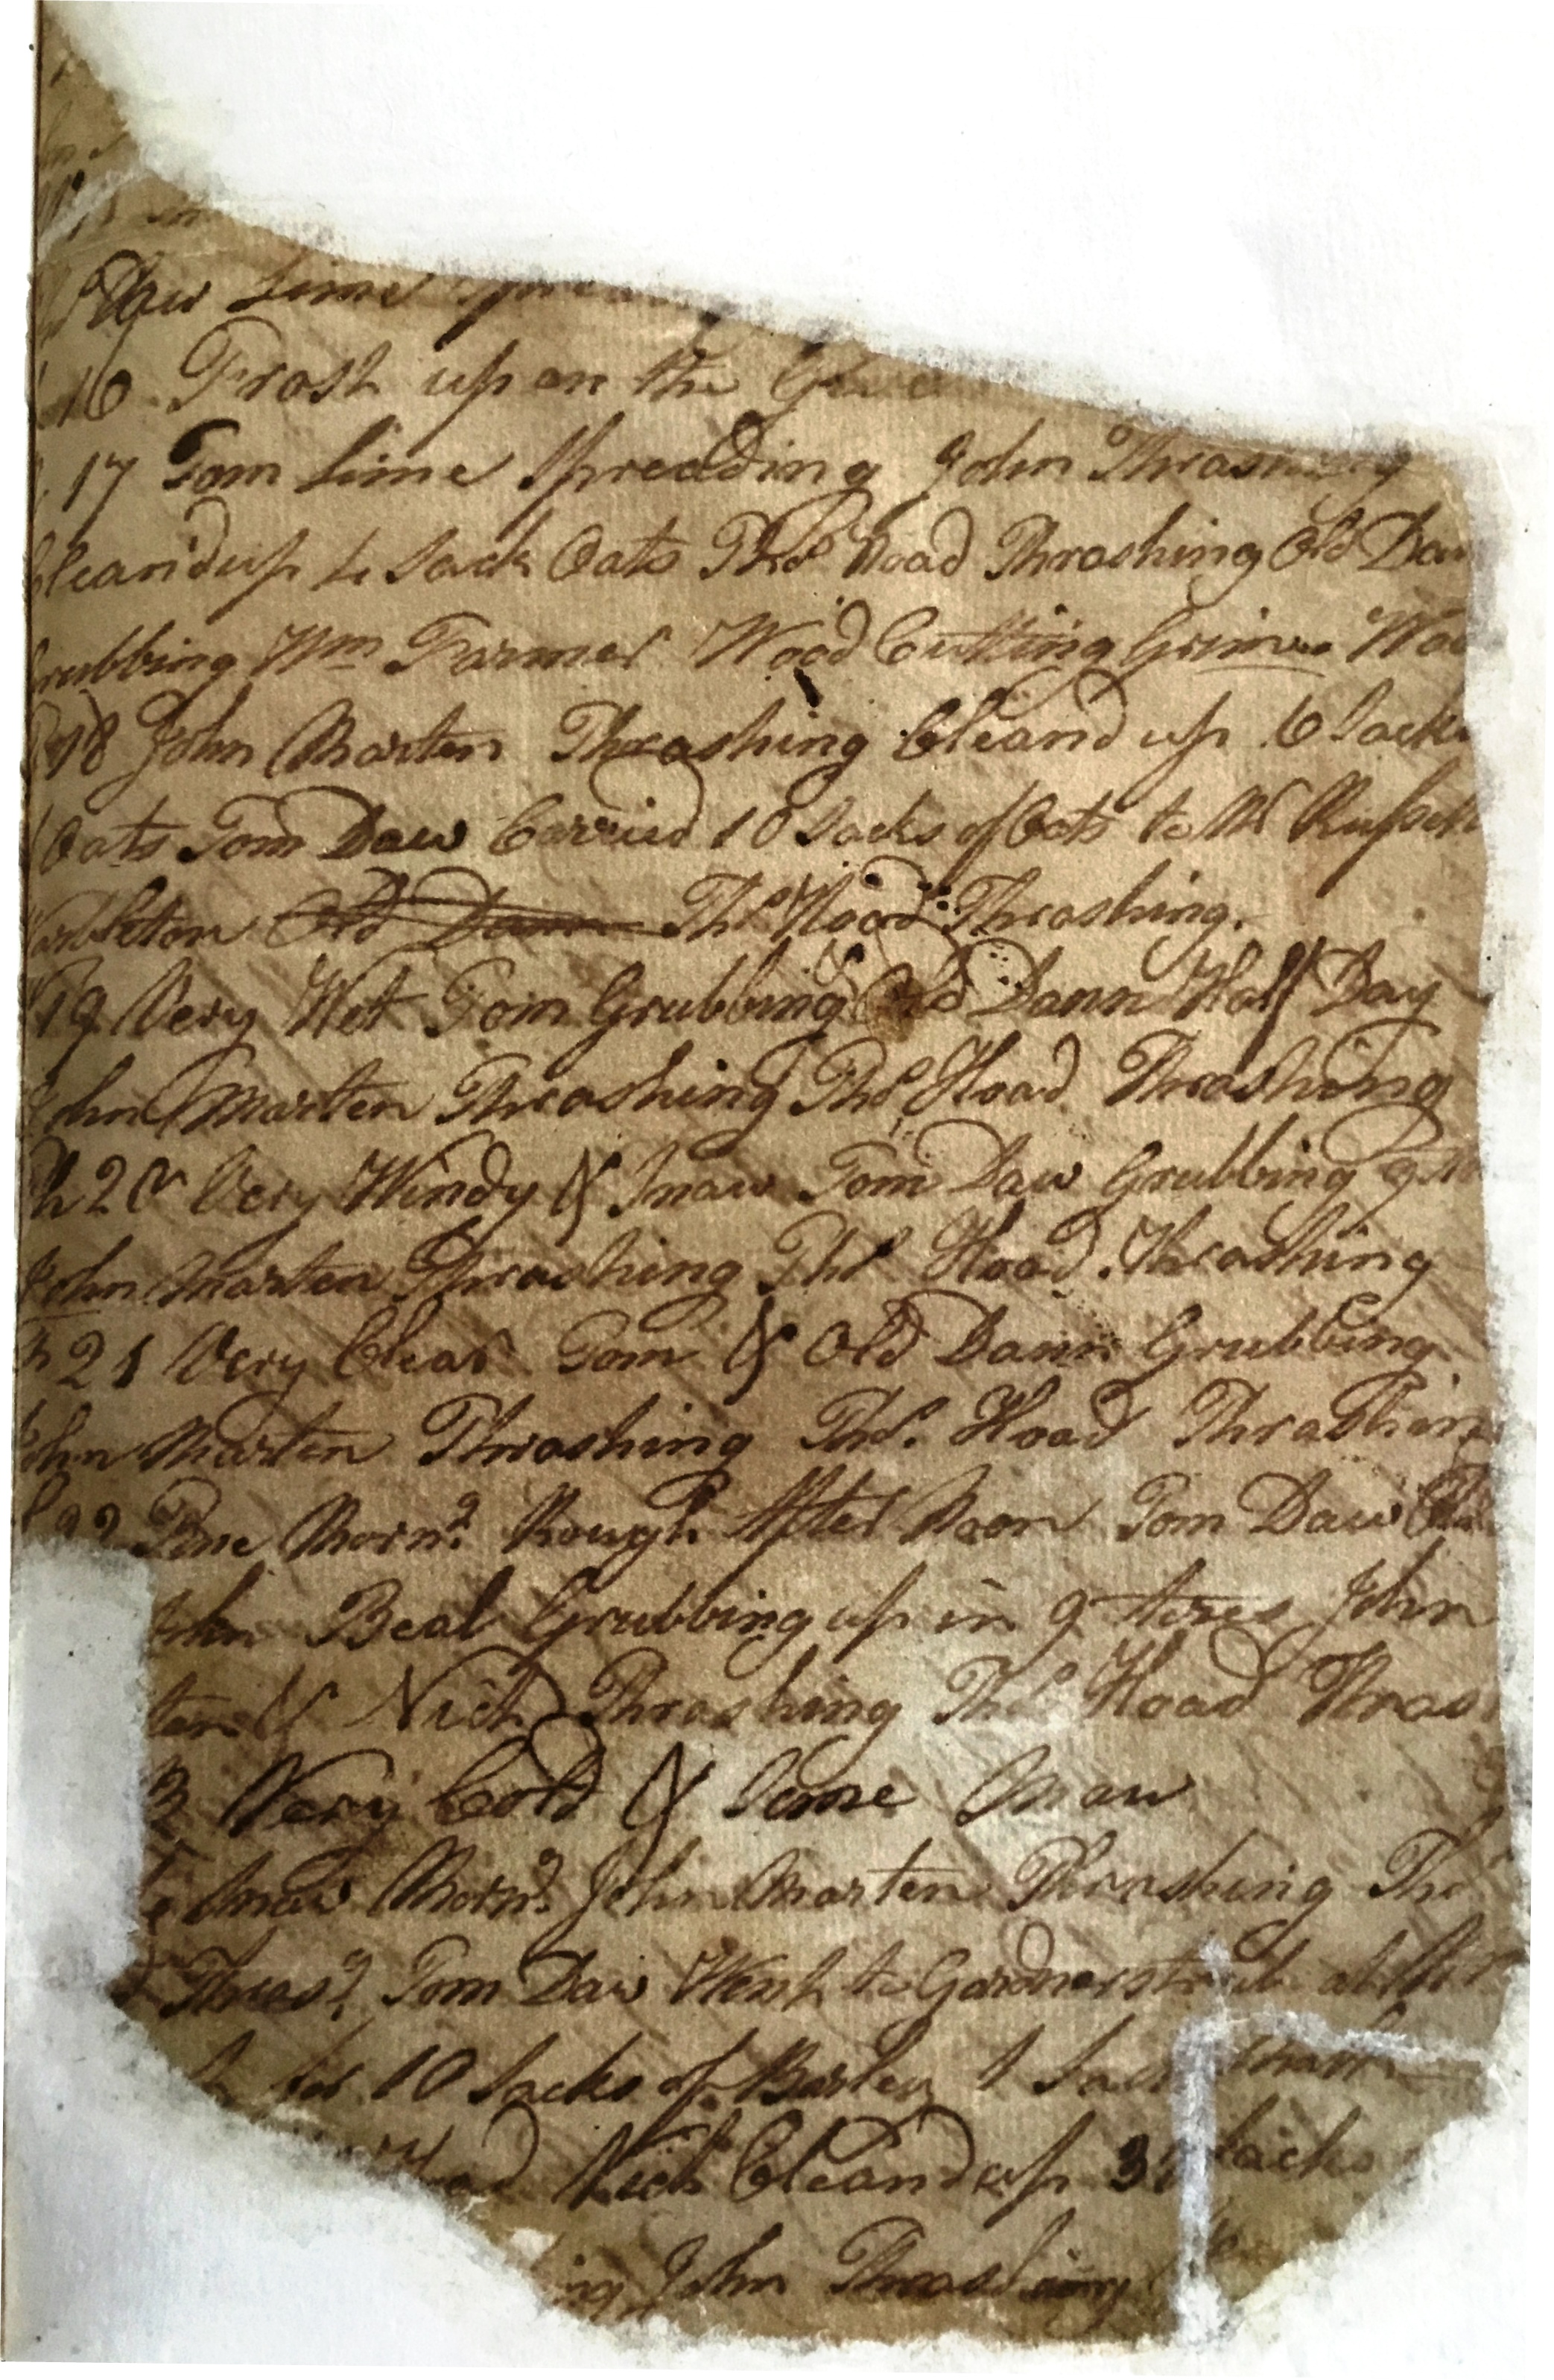 Daw Lime
16 Frost up on the
17 Tom Lime Spreading John Thrashing
Cleand up 4 Sack Oats Thos Hoad Thrashing Old Dan
Grubbing Wm Farmer Wood Cutting
18 John Marten Thrashing Cleand up 6 Sacks
Oats Tom Daw Carried 10 Sacks of Oats to Mr Russell
Old Dann Thos Hoad Thrashing.
19 Very Wet Tom Grubbing Old Dann Half Day
John Marten Thrashing Thos Hoad Thrashing
20 Very Windy & Snow Tom Daw Grubbing
John Marten Thrashing Thos Hoad Thrashing
21 Very Clear Tom & Old Dann Grubbing
John Marten Thrashing Thos. Hoad Thrashing
22 Fine Morng Rough After Noon Tom Daw
John Beal Grubbing up in 9 Acres John
ten & Nich Thrashing Thos Hoad Thras
3 Very Cold & Some Snow
Snow Morng John Marten Thrashing Tho
Thrasg Tom Daw Went to Gardnerstreet
for 10 Sacks of Barley 1 Sack
Hoad Nich Cleand up 3 Sacks
ing John Thrashing